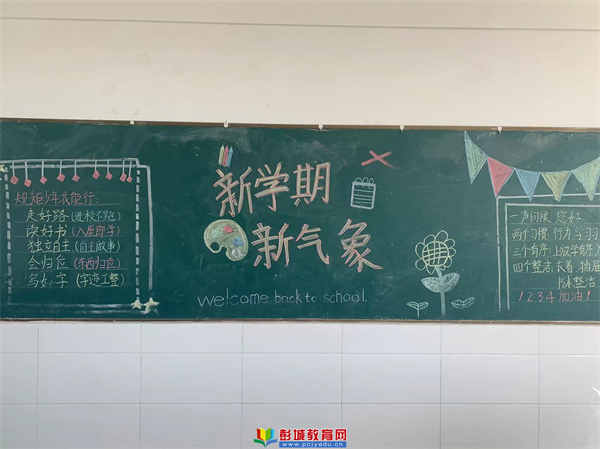 规矩少年我能行:
走好路(进校不跑)
读好书(入座即学)
独立自主(自主做事)
会归位(东西归位)
写好字(字迹工整)
新学期
新气象
welcome back to school.
一声问候 您好
两个习惯:行为
三个有序:上放学有序
四个整洁:衣着
整洁
1234加油!
彭城教育网
www.pcjyedu.cn